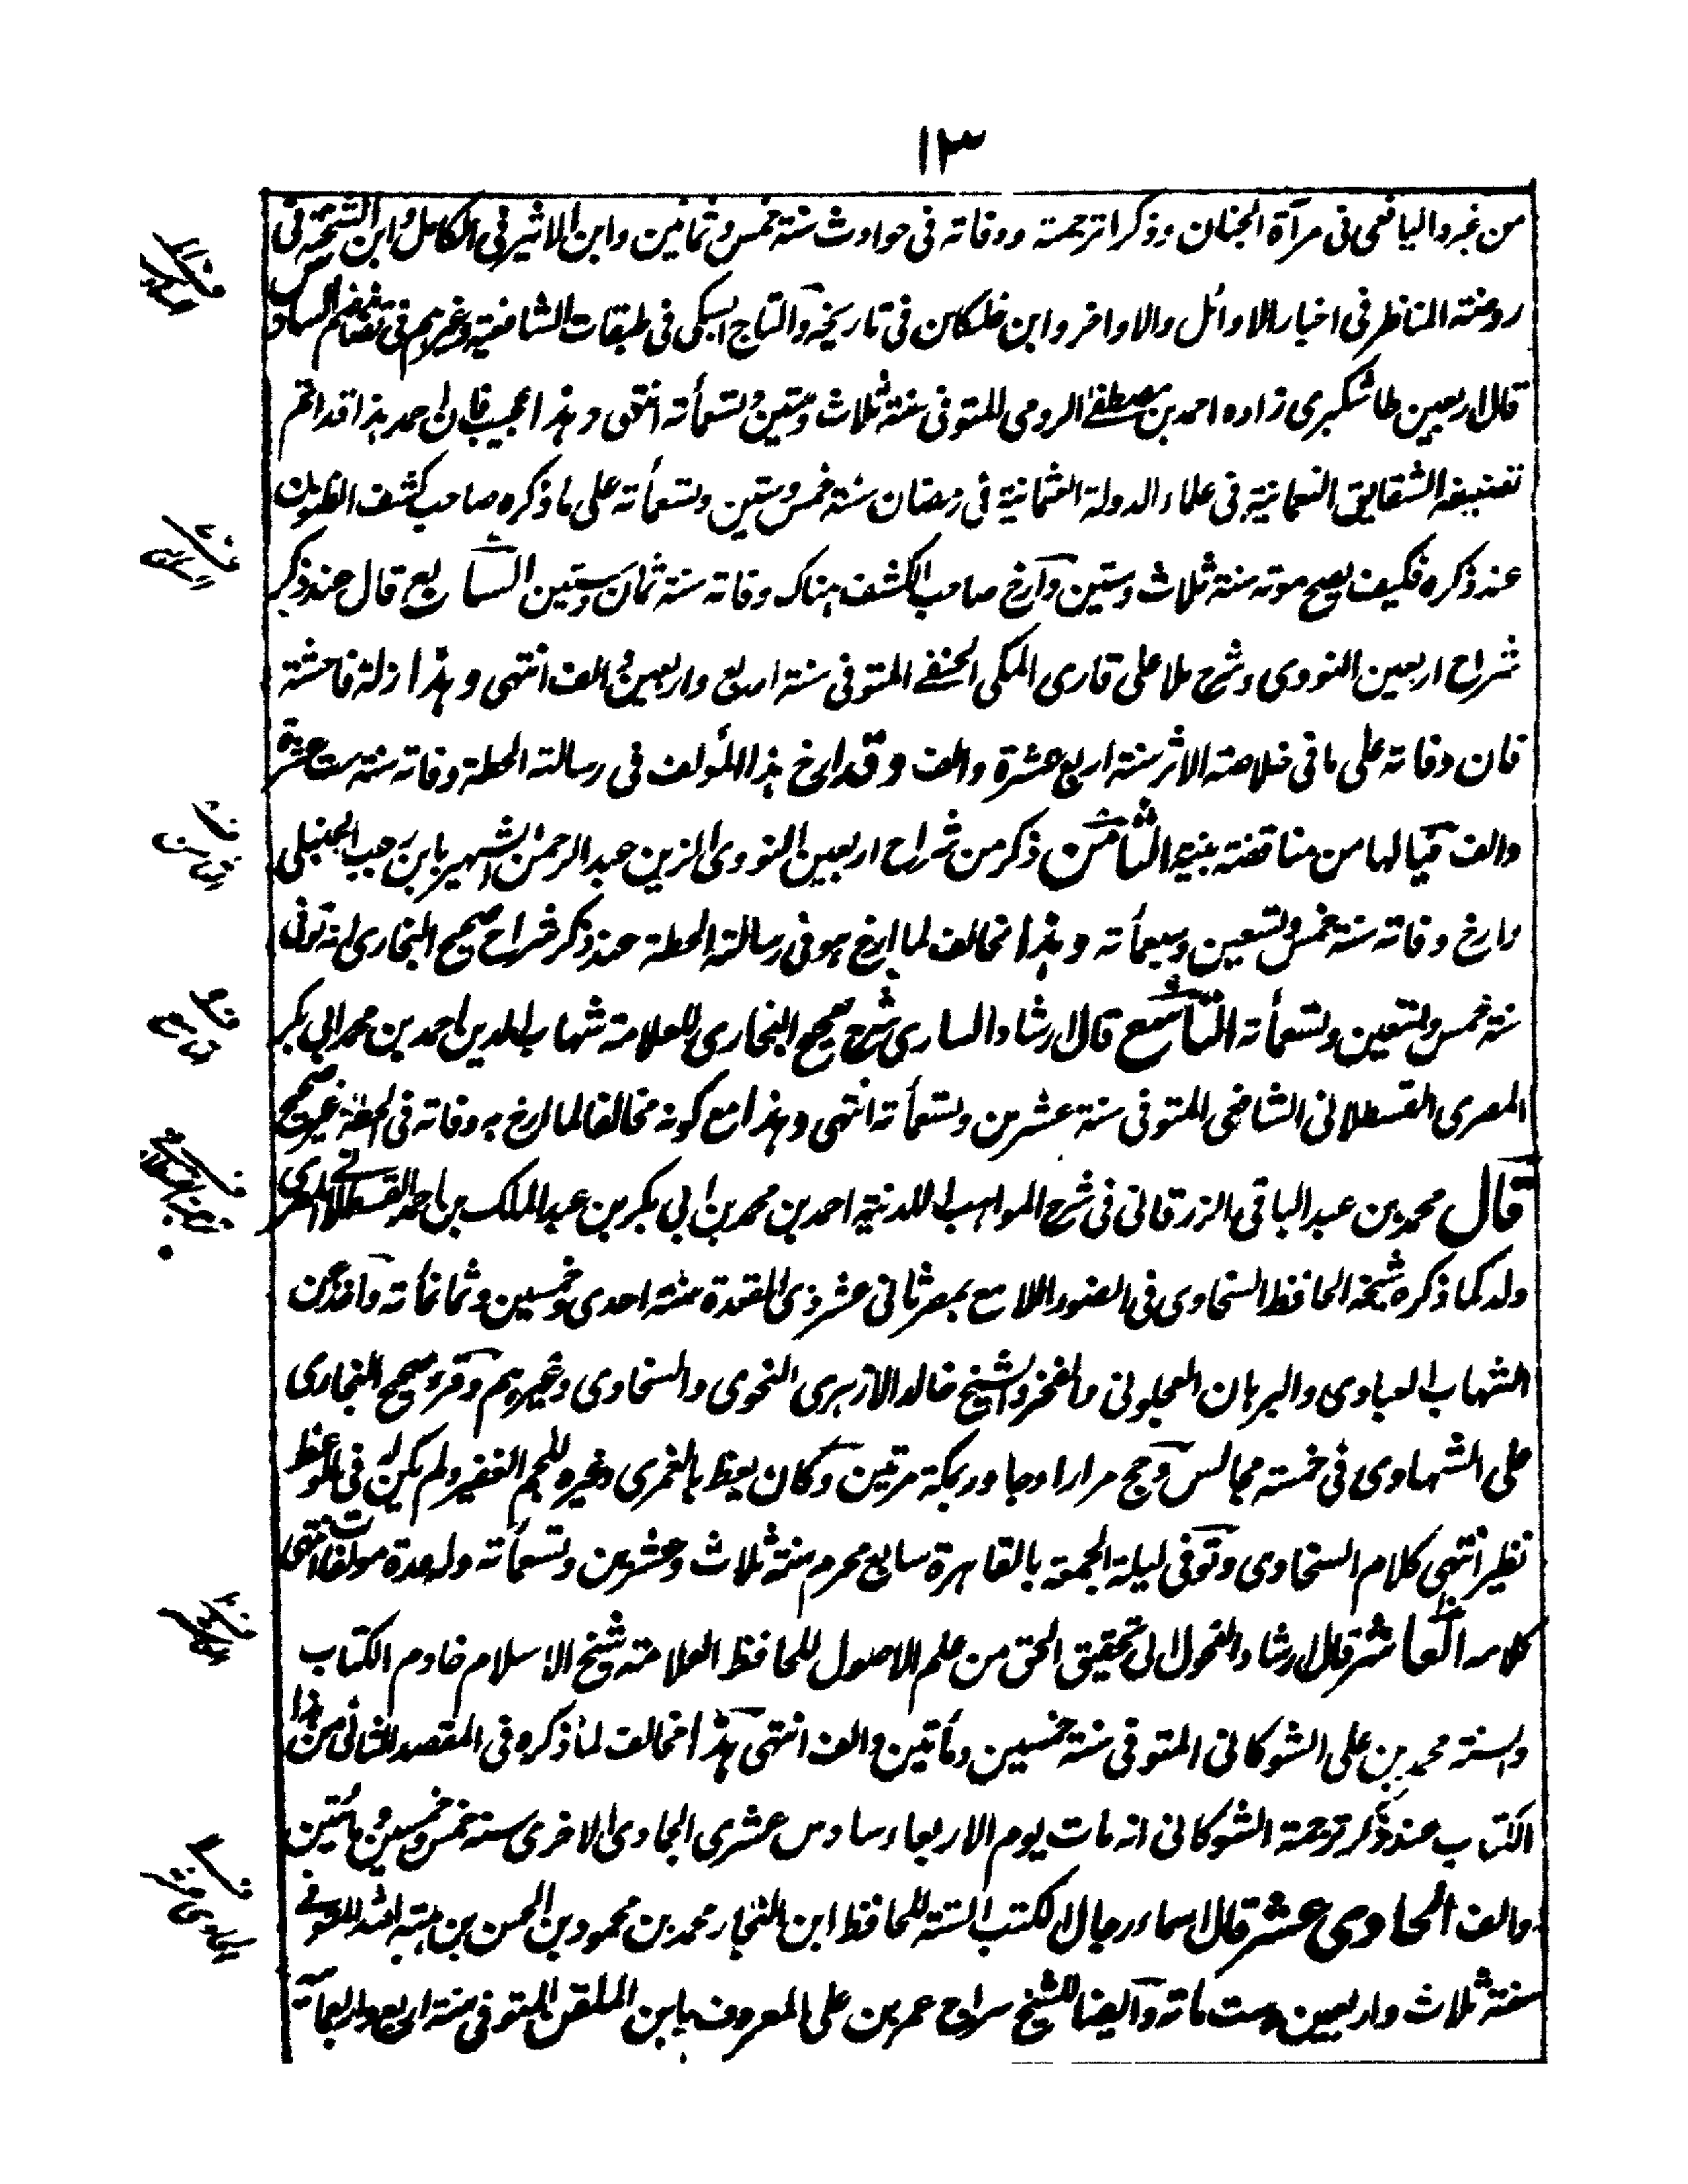 ١٣
من غبر واليافعى فى مرآة الجنان وذكرا ترجمته ووفاته فى حوادث سنة خمس وثمانين وابن الاثير فى الكامل وابن الشحنة فى
روضة المناظر فى اخبار الاوائل والاواخر وابن خلكان فى تاريخه والتاج السبكى فى طبقات الشافعية وغيرهم فى تصانيفهم السادس
قال اربعين طاشكبرى زاده احمد بن مصطفى الرومى المتوفى سنة ثلاث وستين وتسعمأته انتهى وهذا عجيب فان احمد هذا قد اتم
تصنيفه الشقايق النعمانية فى علماء الدولة العثمانية فى رمضان سنة خمس وستين وتسعمأته على ما ذكره صاحب كشف الظنون
عند ذكره فكيف يصح موته سنة ثلاث وستين وآرخ صاحب الكشف هناك وفاته سنة ثمان وستين السابع قال عند ذكر
شراح اربعين النووى وشرح ملا على قارى المكى الحنفى المتوفى سنة اربع واربعين والف انتهى وهذا زلة فاحشة
فان وفاته على ما فى خلاصة الاثر سنة اربع عشرة والف وقد ارخ هذا المؤلف فى رسالته الحطة وفاته سنة ست عشرة
والف فيالها من مناقضة بينة الثامن ذكر من شراح اربعين النووى الزين عبد الرحمن الشهير بابن رجب الحنبلى
وارخ وفاته سنة خمس وتسعين وسبعمأته وهذا مخالف لما ارخ هو فى رسالته الحطة عند ذكر شراح صحيح البخارى انه توفى
سنة خمس وتسعين وتسعمأته التاسع قال ارشاد السارى شرح صحيح البخارى للعلامة شهاب الدين احمد بن محمد ابى بكر
المصرى القسطلانى الشافعى المتوفى سنة عشرين وتسعمأته انتهى وهذا مع كونه مخالفا لما ارخ به وفاته فى الحطة غير صحيح
قال محمد بن عبد الباقى الزرقانى فى شرح المواهب اللدنية احمد بن محمد بن ابى بكر بن عبد الملك بن احمد القسطلانى المصرى
ولد كما ذكره شيخه الحافظ السخاوى فى الضوء اللامع بمصر ثانى عشر ذى القعدة سنة احدى وخمسين وثمانمأته واخذ عن
الشهاب العبادى والبرهان العجلونى والفخر والشيخ خالد الازهرى النحوى والسخاوى وغيرهم وقرء صحيح البخارى
على الشهاوى فى خمسة مجالس وحج مرارا وجاور بمكة مرتين وكان يعظ بالغمرى وغيره للجم الغفير ولم يكن له فى الوعظ
نظير انتهى كلام السخاوى وتوفى ليلة الجمعة بالقاهرة سابع محرم سنة ثلاث وعشرين وتسعمأته وله عدة مولفات انتهى
كلامه العاشر قال ارشاد الفحول الى تحقيق الحق من علم الاصول للحافظ العلامة شيخ الاسلام خادم الكتاب
والسنة محمد بن على الشوكانى المتوفى سنة خمسين ومأتين والف انتهى هذا مخالف لما ذكره فى المقصد الثانى من هذا
الكتاب عند ذكر ترجمة الشوكانى انه مات يوم الاربعاء سادس عشرى الجمادى الاخرى سنة خمس وخمسين ومأتين
والف الحادى عشر قال اسماء رجال الكتب الستة للحافظ ابن النجار محمد بن محمود بن الحسن بن هبة الله المتوفى
سنة ثلاث واربعين وست مأته وآيضا للشيخ سراج عمر بن على المعروف بابن الملقن المتوفى سنة اربع واربعمأته